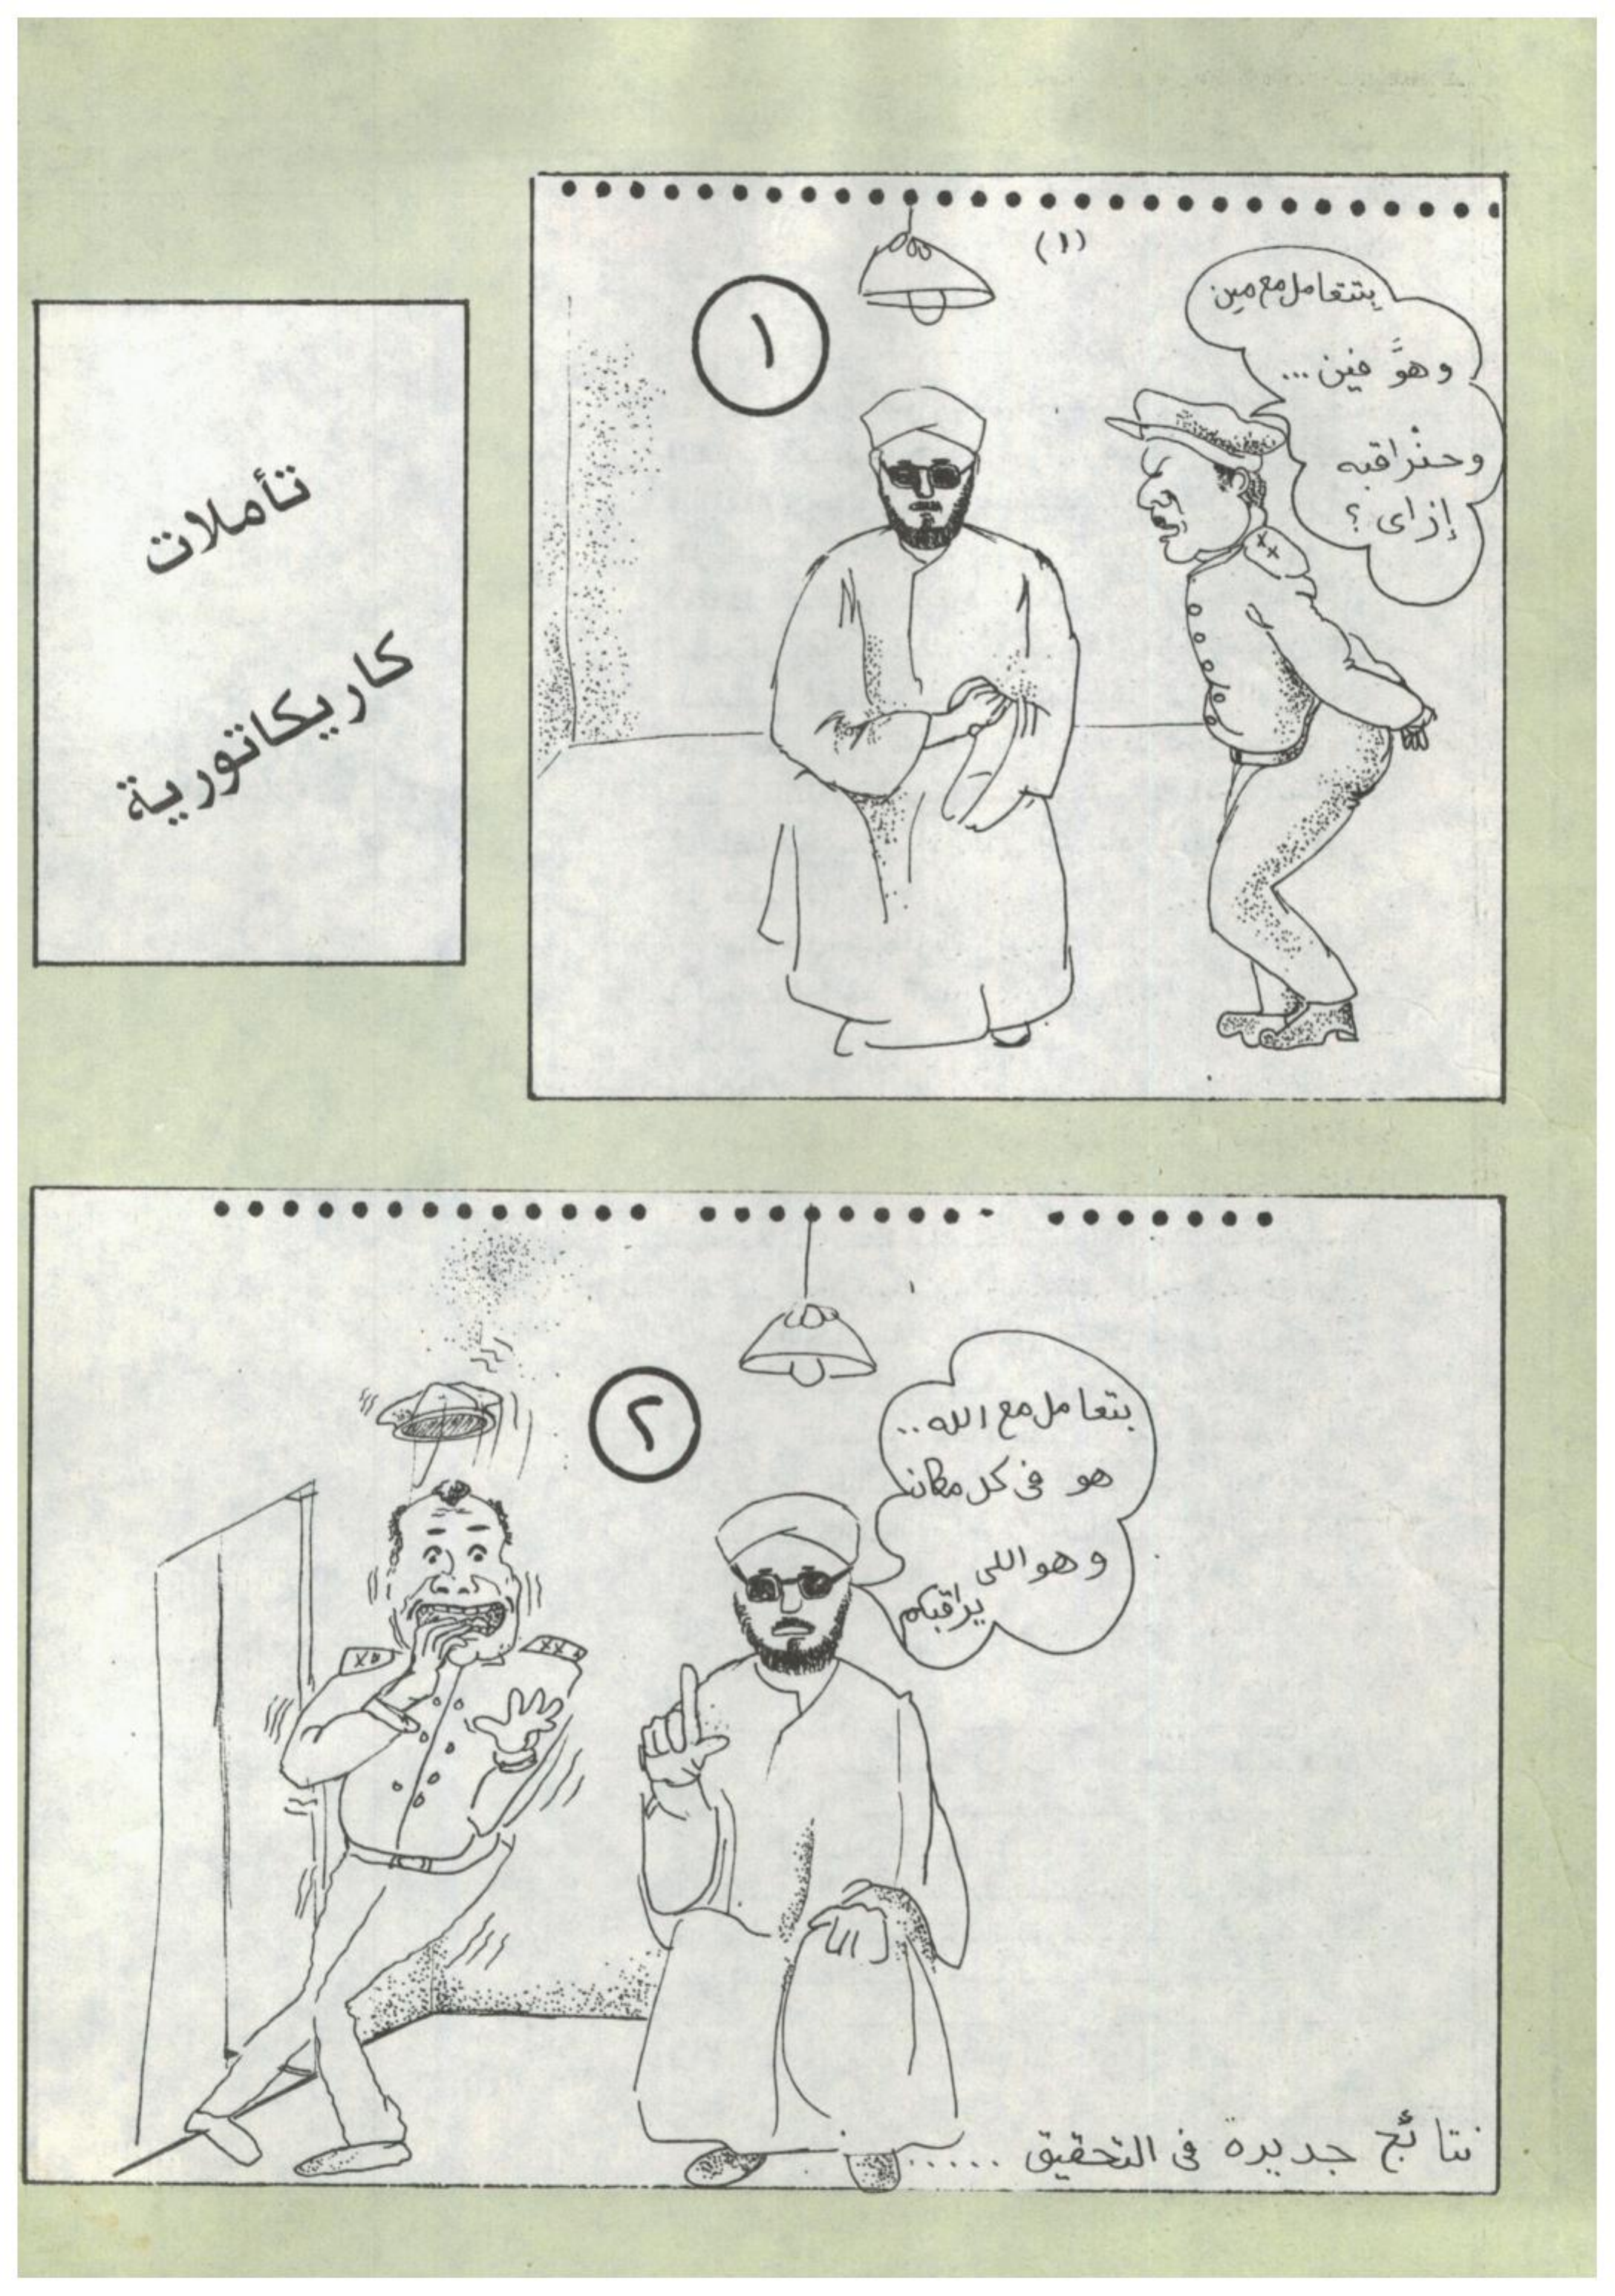 تأملات
كاريكاتورية
(١)
١
بتتعامل مع مين
وهوَّ فين ...
وحنراقبه
إزاى ؟
٢
بتعامل مع الله ..
هو فى كل مكان
وهو اللى
يراقبكم
نتائج جديدة فى التحقيق .....